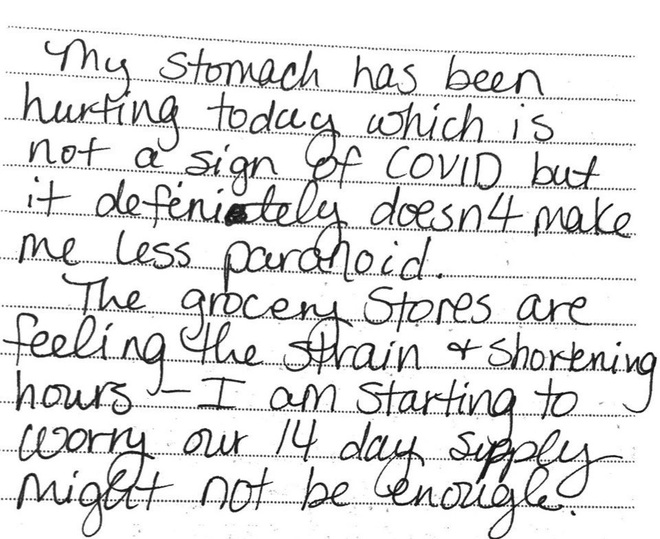 My stomach has been
hurting today which is
not a sign of COVID but
it defenitely doesn't make
me less paranoid.
The grocery stores are
feeling the strain + shortening
hours - I am starting to
worry our 14 day supply
might not be enough.